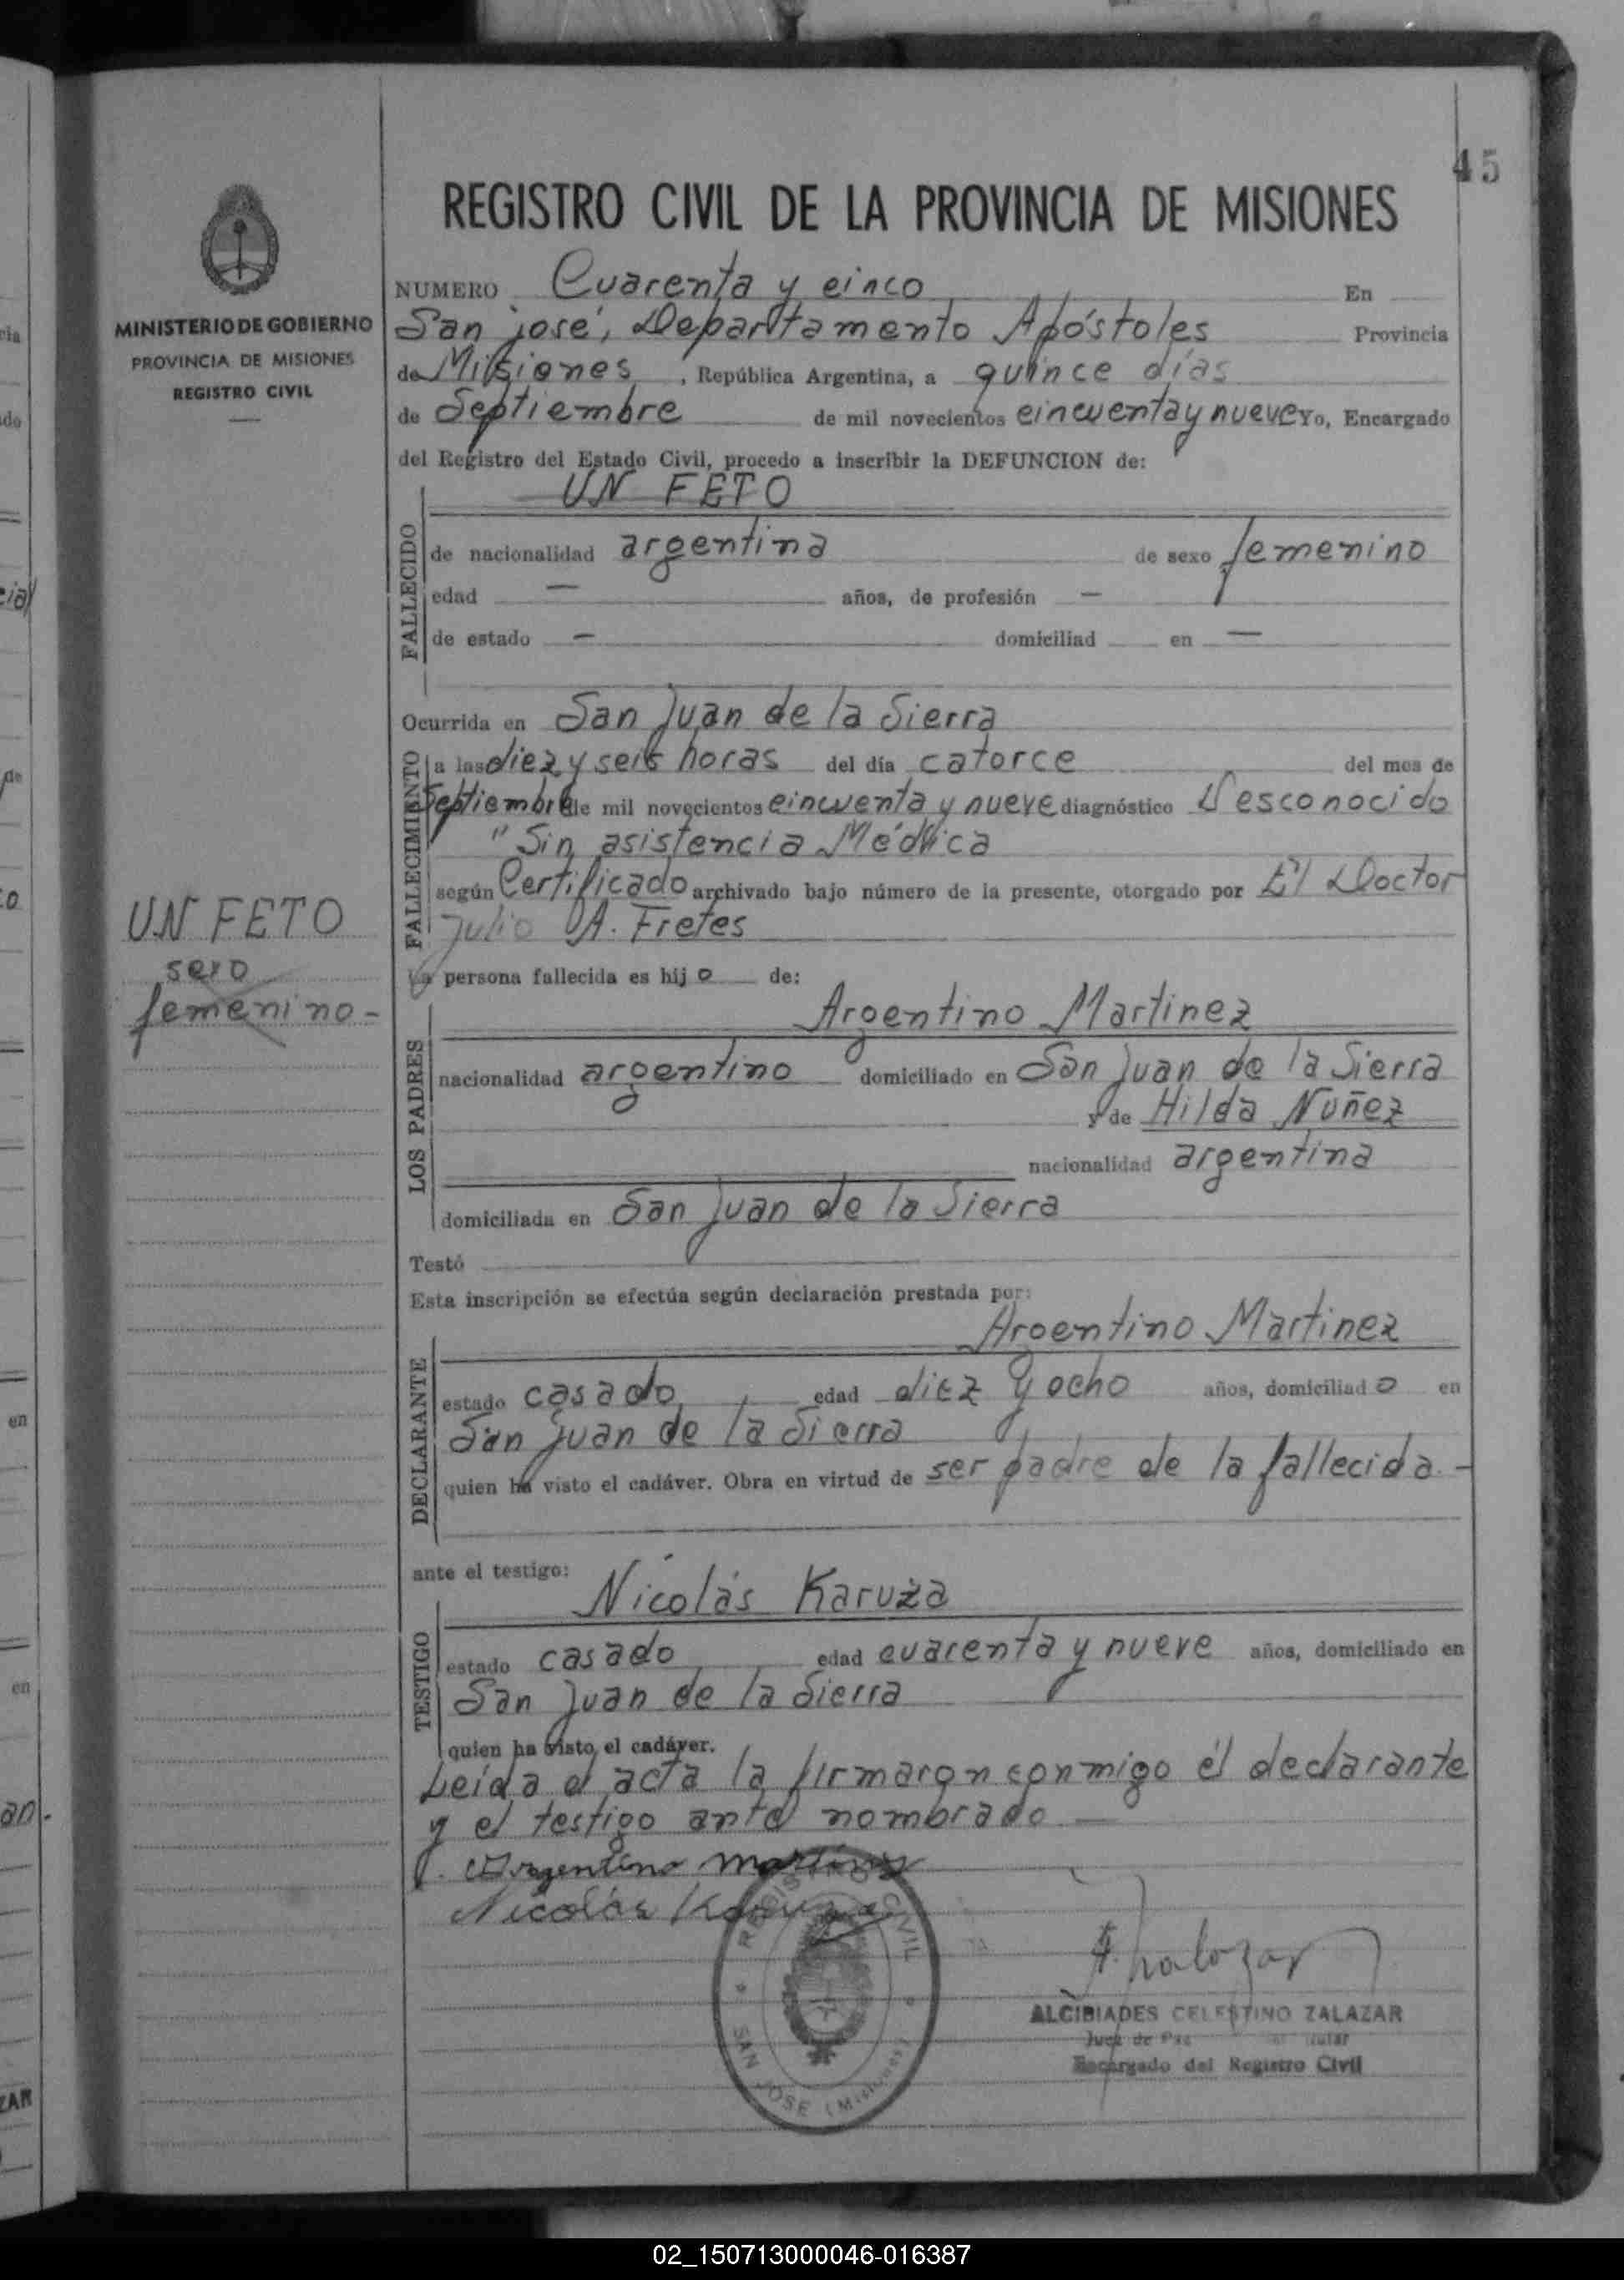 45
REGISTRO CIVIL DE LA PROVINCIA DE MISIONES
MINISTERIO DE GOBIERNO
PROVINCIA DE MISIONES
REGISTRO CIVIL
NUMERO Cuarenta y cinco En
San josé, Departamento Apóstoles Provincia
de Misiones, República Argentina, a quince días
de Septiembre de mil novecientos cincuenta y nueve Yo, Encargado
del Registro del Estado Civil, procedo a inscribir la DEFUNCION de:
UN FETO
FALLECIDO
de nacionalidad argentina de sexo femenino
edad — años, de profesión —
de estado — domiciliad en —
Ocurrida en San Juan de la Sierra
FALLECIMIENTO
a las diez y seis horas del día catorce del mes de
Septiembre de mil novecientos cincuenta y nueve diagnóstico Desconocido
"Sin asistencia Médica
según Certificado archivado bajo número de la presente, otorgado por El Doctor
Julio A. Fretes
UN FETO
sexo
femenino-
La persona fallecida es hijo de:
LOS PADRES
Argentino Martinez
nacionalidad argentino domiciliado en San Juan de la Sierra
y de Hilda Nuñez
nacionalidad argentina
domiciliada en San Juan de la Sierra
Testó
Esta inscripción se efectúa según declaración prestada por:
Argentino Martinez
DECLARANTE
estado casado edad diez y ocho años, domiciliado en
San Juan de la Sierra
quien ha visto el cadáver. Obra en virtud de ser padre de la fallecida.-
ante el testigo:
Nicolás Karuza
TESTIGO
estado casado edad cuarenta y nueve años, domiciliado en
San Juan de la Sierra
quien ha visto el cadáver.
Leída el acta la firmaron conmigo él declarante
y el testigo ante nombrado —
Argentino Martinez
Nicolás Karuza
REGISTRO CIVIL
SAN JOSE (Misiones)
A. Zalazar
ALCIBIADES CELESTINO ZALAZAR
Juez de Paz
Encargado del Registro Civil
02_150713000046-016387